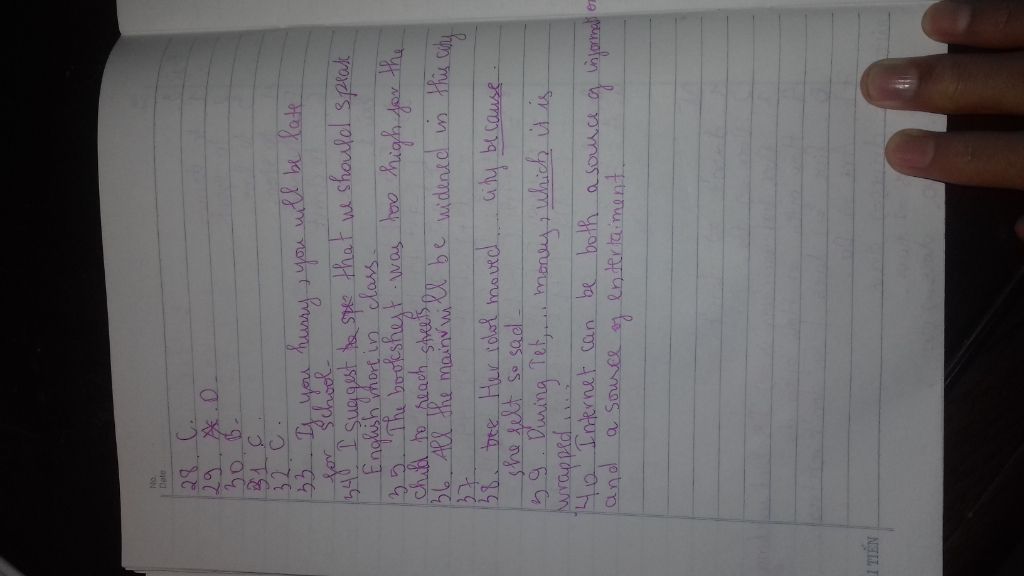 No.
Date
28. C.
29. D.
30. B.
31. C.
32. C.
33. If you hurry, you will be late
for school.
34. I suggest that we should speak
English more in class.
35. The bookshelf was too high for the
child to reach
36. All the main streets will be widened in this city
37.
38. Her idol moved... city because.
she felt so sad.
39. During Tet,... money, which it is
wrapped.....
40 Internet can be both a source of information
and a source of entertainment.
I TIẾN